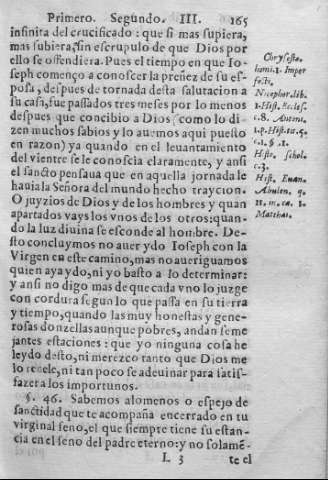 Primero. Segundo. III. 165
infinita del crucificado : que si mas supiera,
mas subiera, sin escrupulo de que Dios por
ello se offendiera. Pues el tiempo en que Io-
seph començo a conoscer la preñez de su es-
posa, despues de tornada desta salutacion a
su casa, fue passados tres meses por lo menos
despues que concibio a Dios (como lo di-
zen muchos sabios y lo auemos aqui puesto
en razon) ya quando en el leuantamiento
del vientre se le conoscia claramente, y ansi
el sancto pensaua que en aquella jornada le
hauia la Señora del mundo hecho trayçion.
O juyzios de Dios y de los hombres y quan
apartados vays los vnos de los otros: quan-
do la luz diuina se esconde al hombre. De-
sto conclu ymos no auer ydo Ioseph con la
Virgen en este camino, mas no aueriguamos
quien aya ydo, ni yo basto a lo determinar:
y ansi no digo mas de que cada vno lo juzge
con cordura segun lo que passa en su tierra
y tiempo, quando las muy honestas y gene-
rosas donzellas aunque pobres, andan seme
jantes estaciones : que yo ninguna cosa he
leydo desto, ni merezco tanto que Dios me
lo reuele, ni tan poco se adeuinar para satis-
fazer a los importunos.
§. 46. Sabemos alomenos o espejo de
sanctidad que te acompaña encerrado en tu
virginal seno, el que siempre tiene su estan-
cia en el seno del padre eterno: y no solamē-
L 3 te el
Chrysosto.
homi. 1. Imper
fecti.
Nicephor. lib.
1. Hist. Eccles.
c. 8. Antoni.
1. p. Hist. tit. 5.
c. 1. §. 1.
Histo. schol.
c. 3.
Hist. Euan.
Abulen. q.
11. in. ca. 1.
Matthæi.